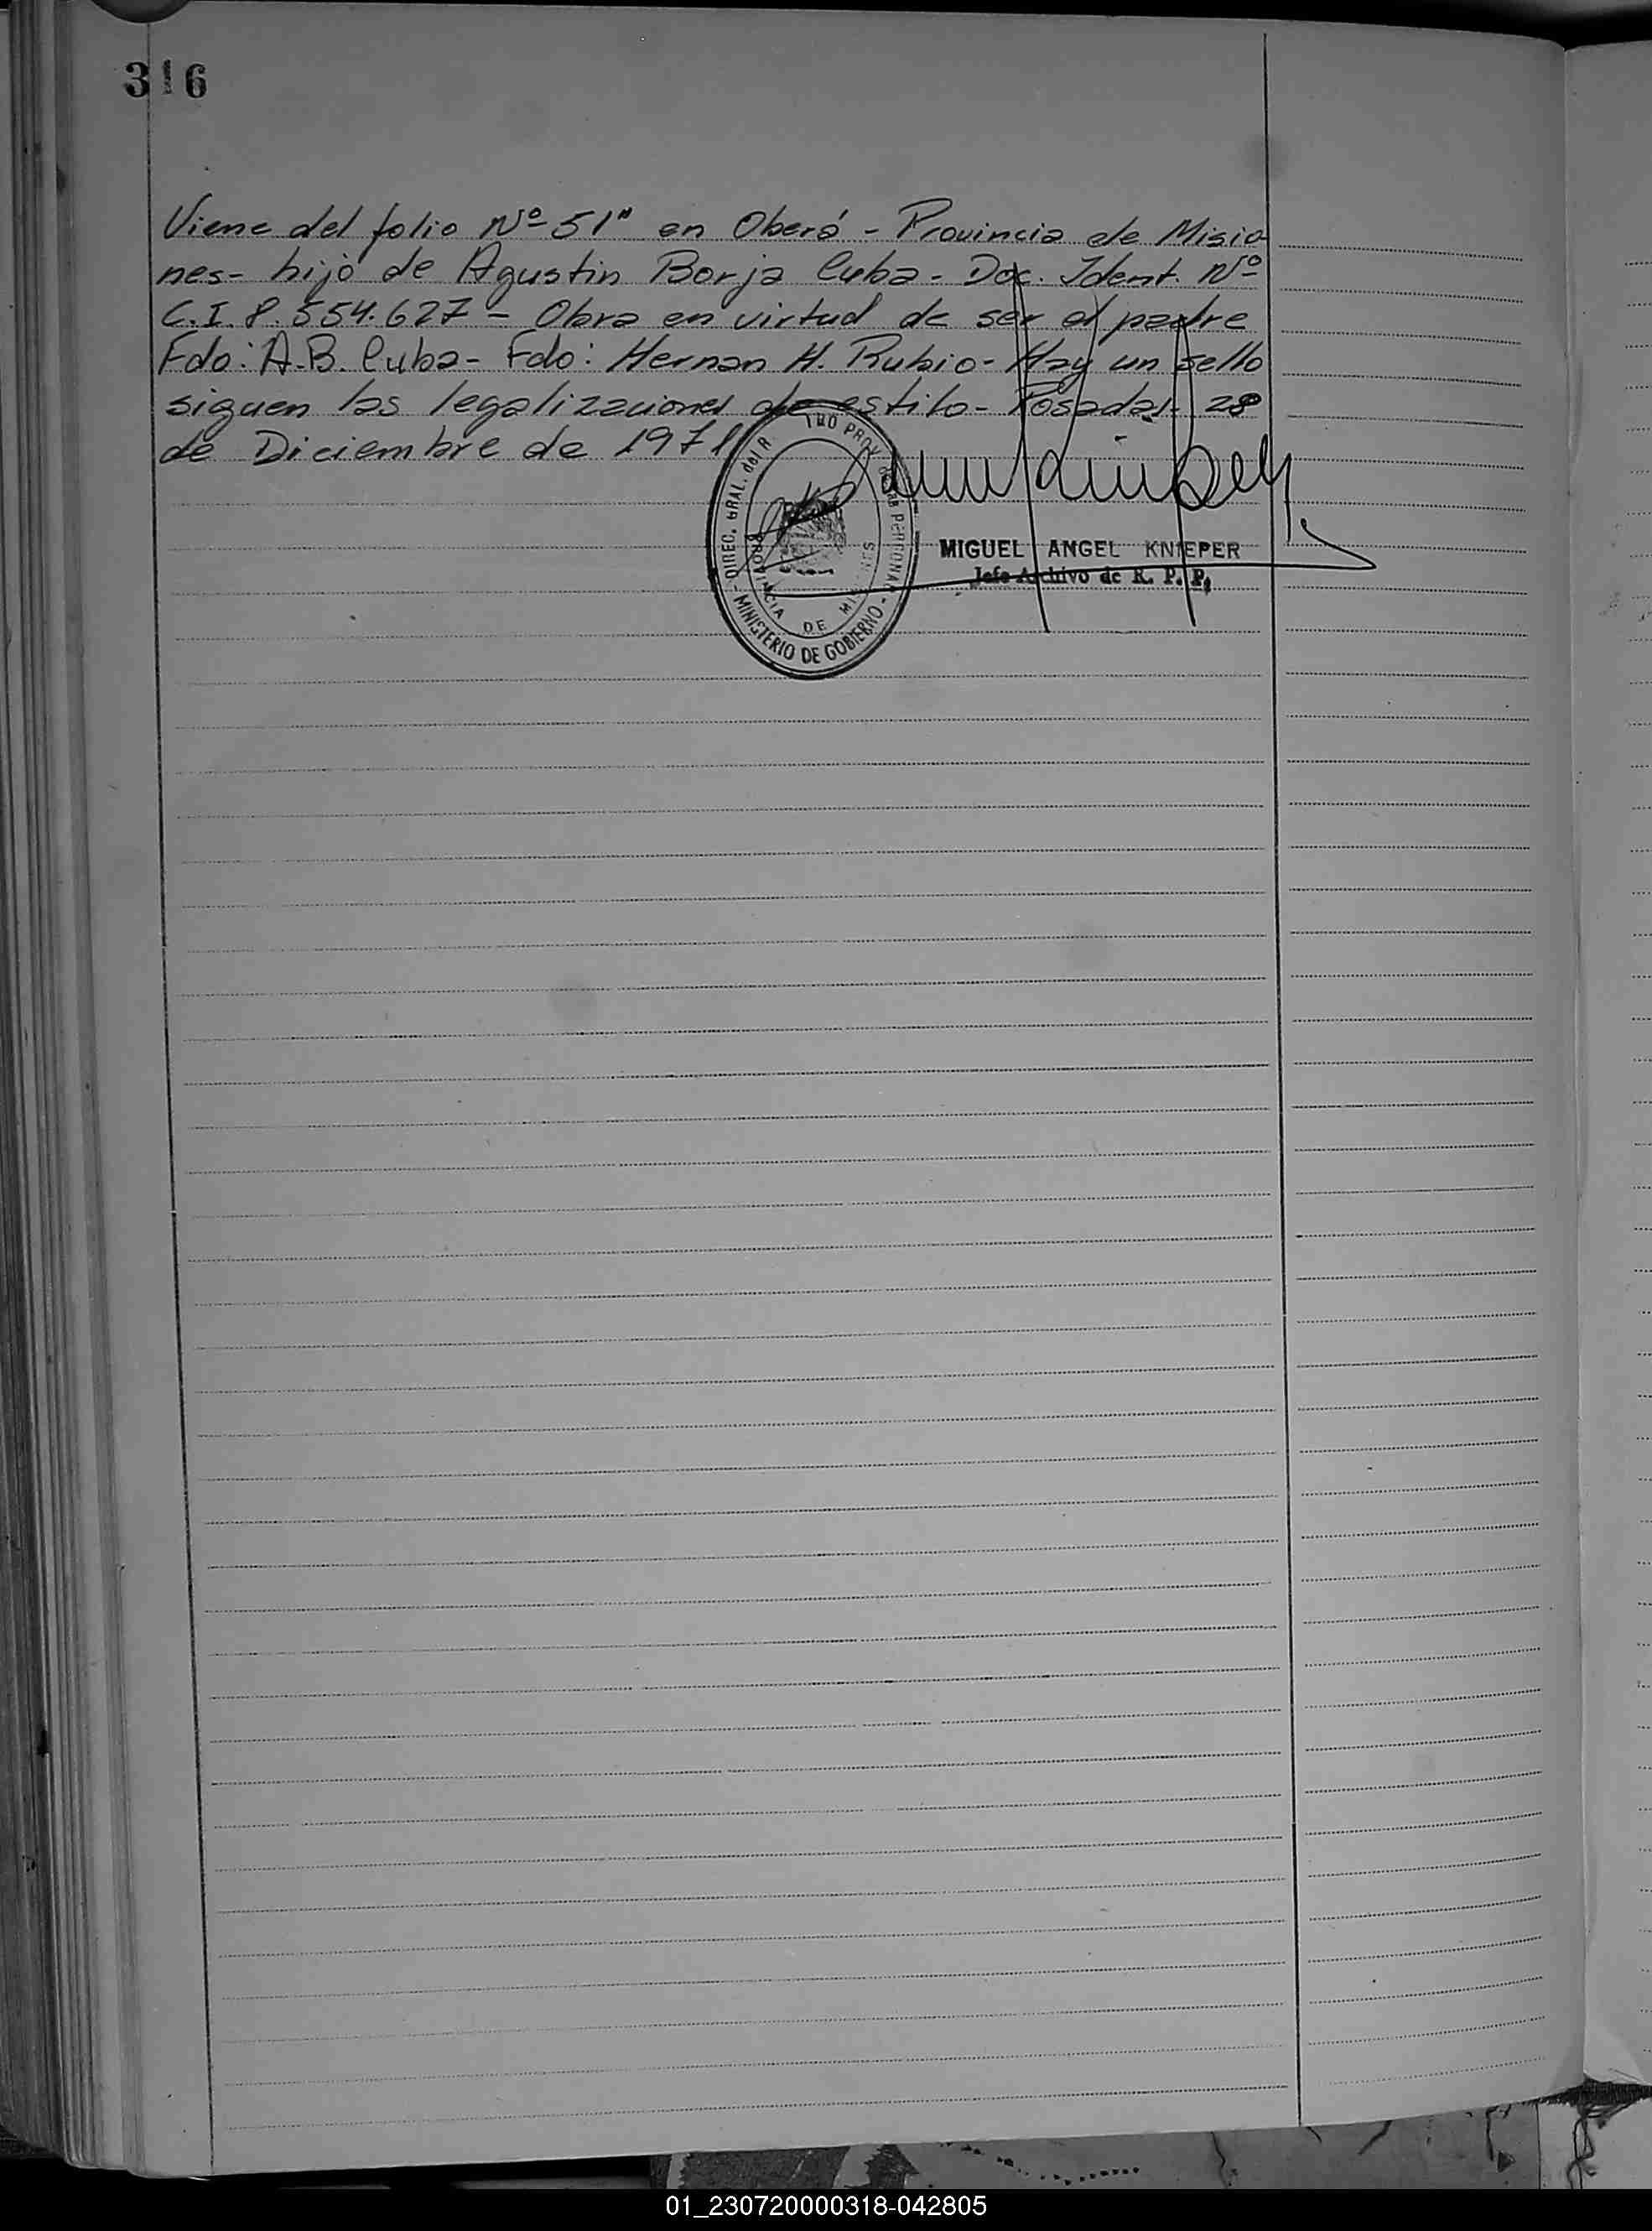 316
Viene del folio Nº 51" en Oberá - Provincia de Misio
nes - hijo de Agustin Borja Cuba - Doc. Ident. Nº
C.I. 8.554.627 - Obra en virtud de ser el padre
Fdo: A.B. Cuba - Fdo: Hernan H. Rubio - Hay un sello
siguen las legalizaciones de estilo - Posadas 28
de Diciembre de 1971
DIREC. GRAL. del R PROV. de las Personas
PROVINCIA DE MISIONES
- MINISTERIO DE GOBIERNO -
MIGUEL ANGEL KNIEPER
Jefe Archivo de R. P. P.
01_230720000318-042805